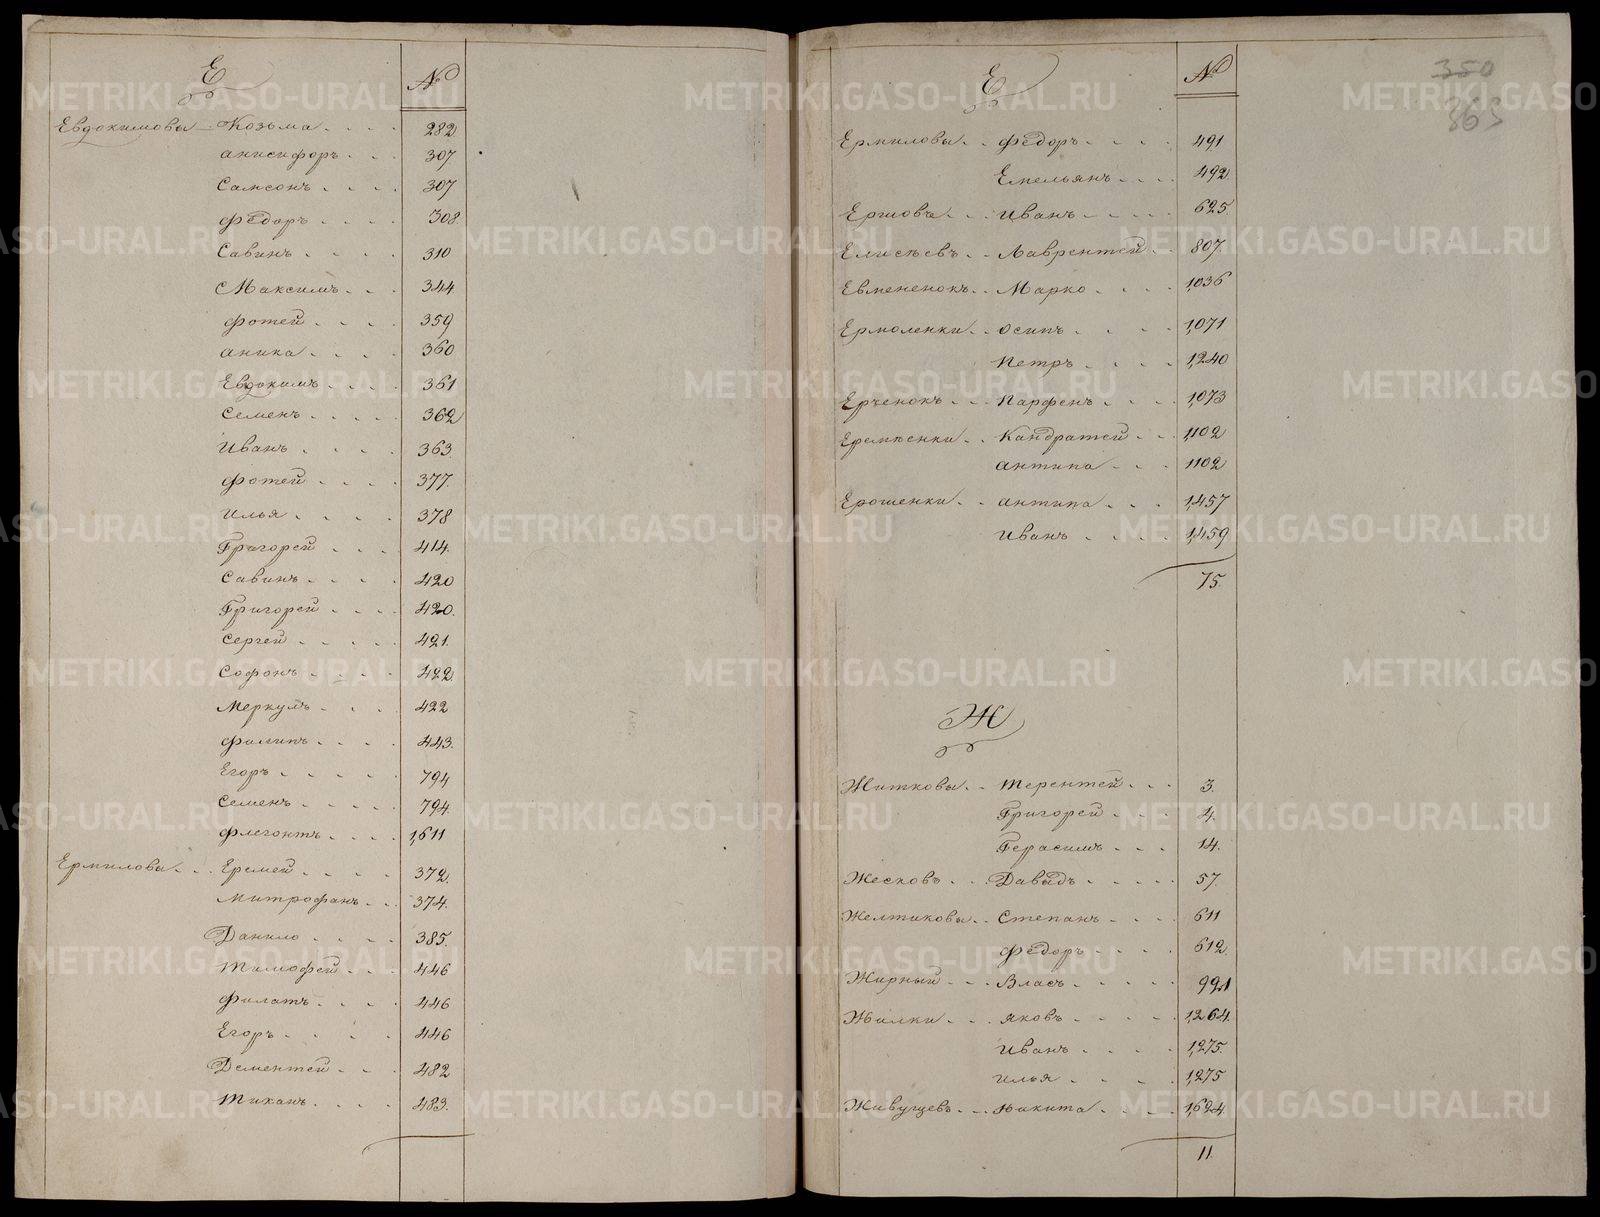 Е №
Евдокимовы - Козьма 282
Анисифоръ 307
Самсонъ 307
Федоръ 308
Савинъ 310
Максимъ 344
Фотей 359
Аника 360
Евдокимъ 361
Семенъ 362
Иванъ 363
Фотей 377
Илья 378
Григорей 414
Савинъ 420
Григорей 420
Сергей 421
Софонъ 422
Меркулъ 422
Филипъ 443
Егоръ 794
Семенъ 794
Флегонтъ 1,611
Ермиловы Еремей 372
Митрофанъ 374
Данило 385
Тимофей 446
Филатъ 446
Егоръ 446
Дементей 482
Тиханъ 483
350
363
Е №
Ермиловы Федоръ 491
Емельянъ 492
Ершовъ Иванъ 625
Елисѣевъ Лаврентей 807
Евмененокъ Марко 1,036
Ермоленки Осипъ 1,071
Петръ 1,240
Ерченокъ Парфенъ 1,073
Еремѣенки Кандратей 1,102
Антипа 1102
Ерошенки Антипа 1,457
Иванъ 1,459
75.
Ж
Житковы Терентей 3.
Григорей 4.
Герасимъ 14.
Жесковъ Давыдъ 57.
Желтиковы Степанъ 611
Федоръ 612
Жирный Власъ 991
Жилки Яковъ 1,264.
Иванъ 1,275.
Илья 1,275
Живущевъ Никита 1,624.
11.
METRIKI.GASO-URAL.RU